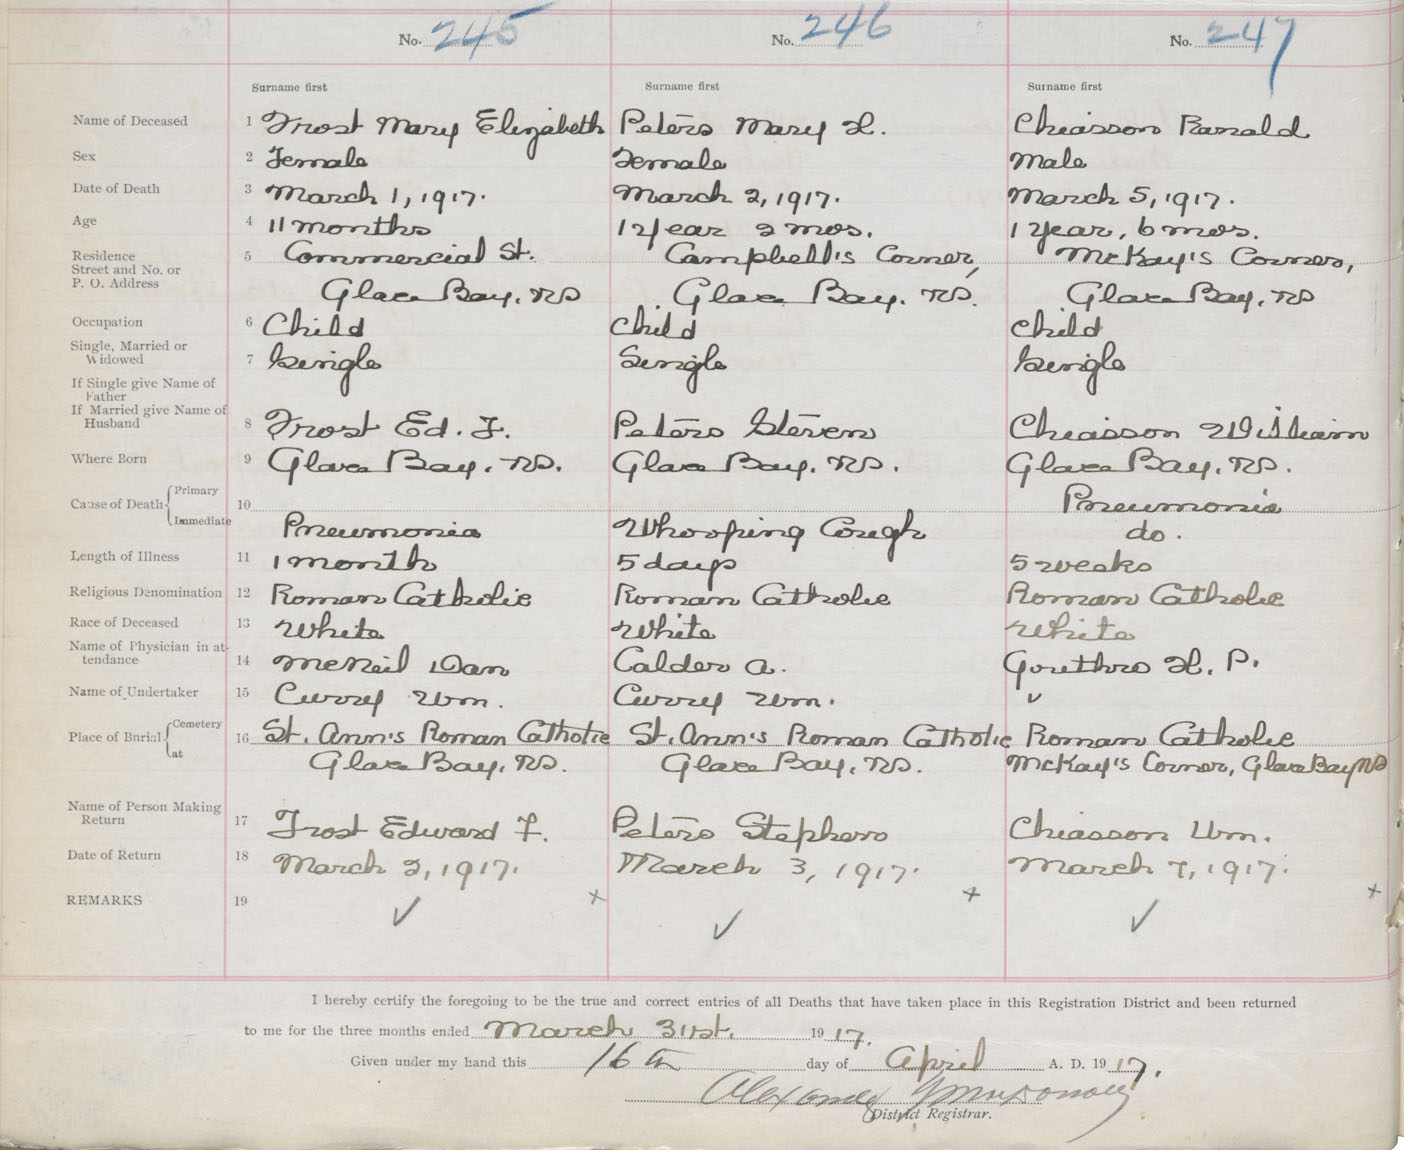 No. 245 No. 246 No. 247
Surname first Surname first Surname first
Name of Deceased 1 Frost Mary Elizabeth Peters Mary H. Chiasson Ranald
Sex 2 Female Female Male
Date of Death 3 March 1, 1917. March 2, 1917. March 5, 1917.
Age 4 11 months 1 year 2 mos. 1 year, 6 mos.
Residence 5 Commercial St. Campbell's Corner, McKay's Corner,
Street and No. or
P. O. Address Glace Bay, NS Glace Bay. NS. Glace Bay, NS
Occupation 6 Child Child Child
Single, Married or
Widowed 7 Single Single Single
If Single give Name of
Father
If Married give Name of
Husband 8 Frost Ed. F. Peters Steven Chiasson William
Where Born 9 Glace Bay, NS. Glace Bay, NS. Glace Bay, NS.
Cause of Death { Primary 10 Pneumonia
Immediate Pneumonia Whooping Cough do.
Length of Illness 11 1 month 5 days 5 weeks
Religious Denomination 12 Roman Catholic Roman Catholic Roman Catholic
Race of Deceased 13 White White White
Name of Physician in at-
tendance 14 McNeil Dan Calder A. Gouthro H. P.
Name of Undertaker 15 Curry Wm. Curry Wm.
Place of Burial { Cemetery 16 St. Ann's Roman Catholic St. Ann's Roman Catholic Roman Catholic
at Glace Bay, NS. Glace Bay, NS. McKay's Corner, Glace Bay NS
Name of Person Making
Return 17 Frost Edward F. Peters Stephen Chiasson Wm.
Date of Return 18 March 2, 1917. March 3, 1917. March 7, 1917.
REMARKS 19
I hereby certify the foregoing to be the true and correct entries of all Deaths that have taken place in this Registration District and been returned
to me for the three months ended March 31st. 19 17.
Given under my hand this 16th day of April A. D. 19 17.
Alexander
District Registrar.